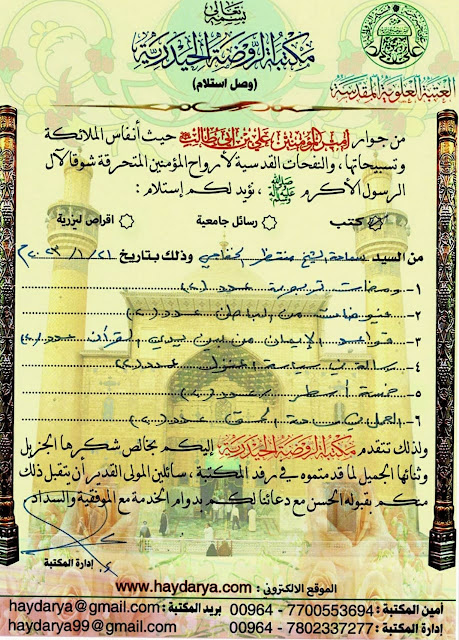 بسمه تعالى
مكتبة الروضة الحيدرية
(وصل استلام)
العتبة العلوية المقدسة
من جوار أمير المؤمنين علي بن أبي طالب حيث أنفاس الملائكة
وتسبيحاتها، والنفحات القدسية لأرواح المؤمنين المتحرقة شوقا لآل
الرسول الأكرم ﷺ ، نؤيد لكم إستلام :
كتب رسائل جامعية اقراص ليزرية
من السيد سماحة الشيخ منتظر الخفاجي وذلك بتاريخ ٢١ / ١ / ٢٠٢٣م
١- ومضات تربوية عدد (٢)
٢- فيوضات من الباطن عدد (٢)
٣- الإيمان من بين يدي القرآن عدد (٢)
٤- سياسة عدد (٢)
٥- خمسة أسطر عدد (٢)
٦- الحق عدد (٢)
ولذلك تتقدم مكتبة الروضة الحيدرية إليكم بخالص شكرها الجزيل
وثنائها الجميل لما قدمتموه في رفد المكتبة ، سائلين المولى القدير أن يتقبل ذلك
منكم بقبوله الحسن مع دعائنا لكم بدوام الخدمة مع الموفقية والسداد
إدارة المكتبة
الموقع الالكتروني : www.haydarya.com
أمين المكتبة : 7700553694 - 00964 بريد المكتبة : haydarya@gmail.com
إدارة المكتبة : 7802337277 - 00964 haydarya99@gmail.com